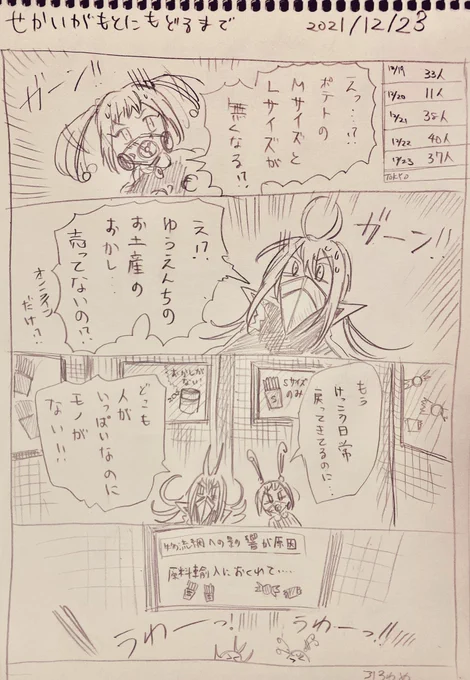 せかいがもとにもどるまで
2021/12/23
12/19 33人
12/20 11人
12/21 38人
12/22 40人
12/23 37人
TOKYO
ガーン!!
えっ…!?
ポテトの
Mサイズと
Lサイズが
無くなる!?
ガーン!!
え!?
ゆうえんちの
お土産の
おかし…
売ってないの!?
オンライン
だけ!?
Sサイズ
のみ
S
もう
けっこう日常
戻ってきてるのに…
おかしが
ない!
どこも
人が
いっぱいなのに
モノが
ない!!!
物流網への影響が原因
原料輸入におくれて…
うわーっ!
うわーっ!!